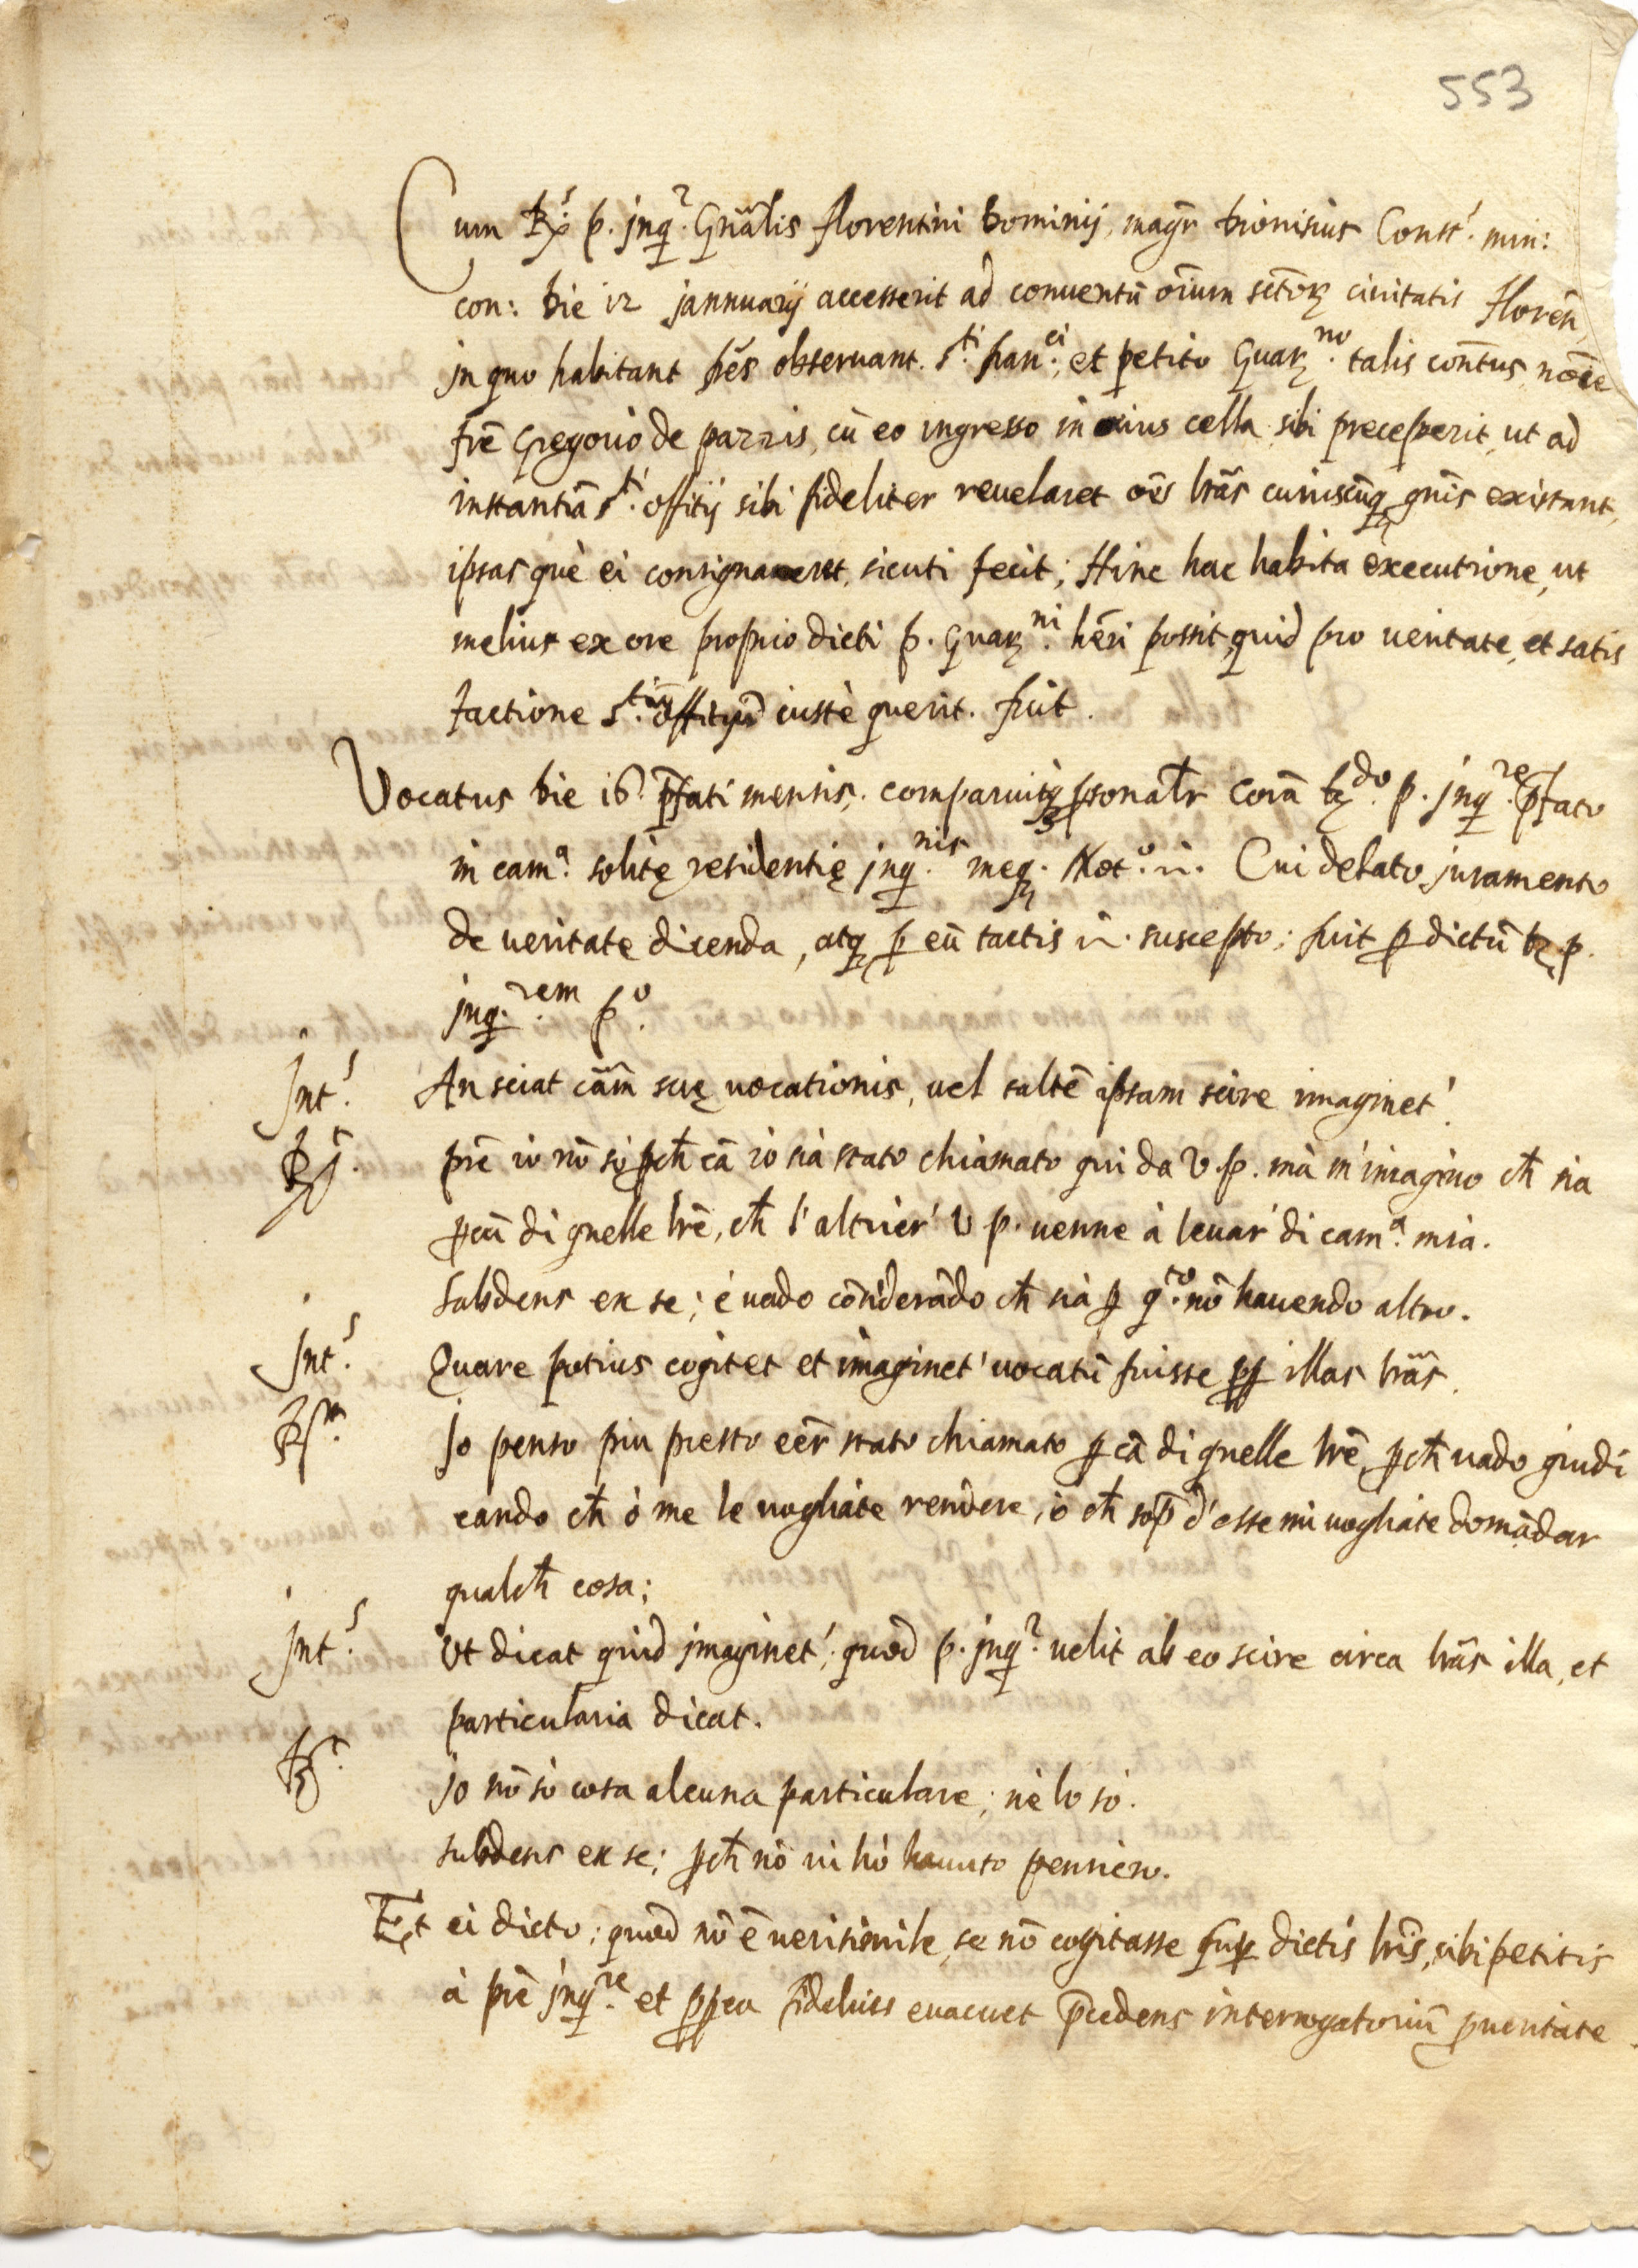 553
Cum R.s p. jnq.r Gn̄alis florentini Dominij, magr̄ Dionisius Const.s min:
con: die 12 jannuarij accesserit ad conuentū oīum sctōꝝ ciuitatis floren̄,
in quo habitant frēs obseruant. s.ti fran.ci; et petito Guar.no talis conūtus, nōīe
frē Gregorio de pazzis, cū eo ingresso in eius cella sibi preceperit, ut ad
instantiā s.ti offitij sibi fideliter reuelaret oēs lrās cuiuscūq gnīs existant,
ipsas què ei consignaret, sicuti fecit; Hinc hac habita executione, ut
melius ex ore proprio dicti p. Guar.ni hēri possit, quid pro ueritate, et satis
factione s.ti offitij iustè querit. fuit.
Vocatus die 16 p̄fati mensis, comparuitq p̱sonalr̄ corā R.do p. jnq.re p̄fato
in cam.a solitę residentię jnq.nis meq. Not.o ñ. Cui delato juramento
de ueritate dicenda, atq ꝑ eū tactis ñ. suscepto; fuit ꝑ dictū R. p.
jnq.rem p.o
Jnt.s An sciat cām suę uocationis, uel saltē ipsam scire imaginet.r
R.t prē io nō sò ꝑch̄ cā io sia stato chiamato qui da V. p. mà m'imagino ch̄ sia
ꝑcā di quelle lrē, ch̄ l'altrier' V p. uenne à leuar' di cam.a mia.
Subdens ex se; é uado cōnsiderādo ch̄ sià ꝑ q.to nō hauendo altro.
Jnt.s Quare potius cogitet et imaginet' uocatū fuisse ꝓp illas lrās.
R.t Jo penso piu presto eēr stato chiamato ꝑ cā di quelle lrē, ꝑch̄ uado giudi
cando ch̄ ò me le uogliate rendere, ò ch̄ sop̄ d'esse mi uogliate domādar
qualch̄ cosa;
Jnt.s Vt dicat quid jmaginet', quod p. jnq.r uelit ab eo scire circa lrās illa, et
particularia dicat.
R.t Jo nō sò cosa alcuna particulare; nè lo sò.
subdens ex se; ꝑch̄ nō ui hò hauuto pensiero.
Et ei dicto; quod nō ē uerisimile, se nō cogitasse suꝑ dictis lrīs, sibi petitis
à prē jnq.re et ꝓpea fidelius euacuet p̄cedens interrogatoriū ꝓ ueritate